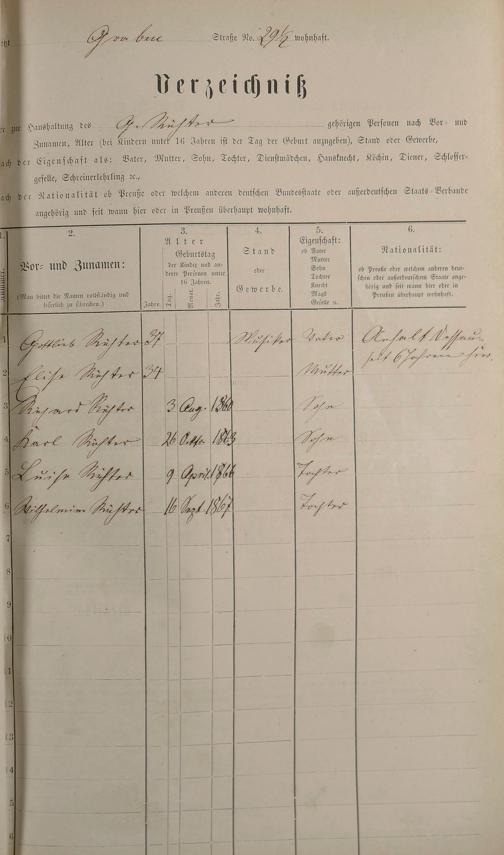 Graben Straße No. 29½ wohnhaft.
Verzeichniß
zur Haushaltung des G. Richter gehörigen Personen nach Vor- und
Zunamen, Alter (bei Kindern unter 16 Jahren ist der Tag der Geburt anzugeben), Stand oder Gewerbe,
nach der Eigenschaft als: Vater, Mutter, Sohn, Tochter, Dienstmädchen, Hausknecht, Köchin, Diener, Schlosser-
geselle, Schreinerlehrling ꝛc.,
nach der Nationalität ob Preuße oder welchem anderen deutschen Bundesstaate oder außerdeutschen Staats-Verbande
angehörig und seit wann hier oder in Preußen überhaupt wohnhaft.
1. 2. 3. 4. 5. 6.
Nummer.
Vor- und Zunamen:
(Man bittet die Namen vollständig und
leserlich zu schreiben.)
Alter
Geburtstag
der Kinder und an-
derer Personen unter
16 Jahren.
Jahre. Tag. Monat. Jahr.
Stand
oder
Gewerbe.
Eigenschaft:
ob Vater
Mutter
Sohn
Tochter
Knecht
Magd
Geselle ꝛc.
Nationalität:
ob Preuße oder welchem anderen deut-
schen oder außerdeutschen Staate ange-
hörig und seit wann hier oder in
Preußen überhaupt wohnhaft.
1 Gottlieb Richter 37 Musiker Vater Anhalt Dessau
seit 6 Jahren hier.
2 Elise Richter 34 Mutter
3 Richard Richter 3 Aug. 1860 Sohn
4 Karl Richter 26 Octbr. 1863 Sohn
5 Luise Richter 9 April 1866 Tochter
6 Wilhelmine Richter 16 Sept 1867 Tochter
7
8
9
10
11
12
13
14
5
6